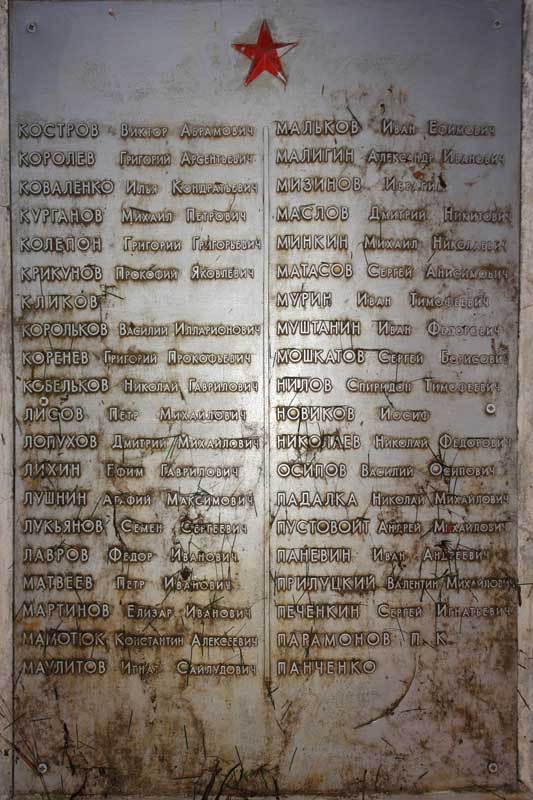 КОСТРОВ Виктор Абрамович
КОРОЛЕВ Григорий Арсентьевич
КОВАЛЕНКО Илья Кондратьевич
КУРГАНОВ Михаил Петрович
КОЛЕПОН Григорий Григорьевич
КРИКУНОВ Прокофий Яковлевич
КЛИКОВ
КОРОЛЬКОВ Василий Илларионович
КОРЕНЕВ Григорий Прокофьевич
КОБЕЛЬКОВ Николай Гаврилович
ЛИСОВ Петр Михайлович
ЛОПУХОВ Дмитрий Михайлович
ЛИХИН Ефим Гаврилович
ЛУШНИН Максимович
ЛУКЬЯНОВ Семен Сергеевич
ЛАВРОВ Федор Иванович
МАТВЕЕВ Петр Иванович
МАРТИНОВ Елизар Иванович
МАМОТЮК Константин Алексеевич
МАУЛИТОВ Игнат Сайлудович
МАЛЬКОВ Иван Ефимович
МАЛИГИН Александр Иванович
МИЗИНОВ
МАСЛОВ Дмитрий Никитович
МИНКИН Михаил Николаевич
МАТАСОВ Сергей Анисимович
МУРИН Иван Тимофеевич
МУШТАНИН Иван Федорович
МОШКАТОВ Сергей Борисович
НИЛОВ Спиридон Тимофеевич
НОВИКОВ Иосиф
НИКОЛАЕВ Николай Федорович
ОСИПОВ Василий Осипович
ПАДАЛКА Николай Михайлович
ПУСТОВОЙТ Андрей Михайлович
ПАНЕВИН Иван Андреевич
ПРИЛУЦКИЙ Валентин Михайлович
ПЕЧЕНКИН Сергей Игнатьевич
ПАРАМОНОВ П. К.
ПАНЧЕНКО